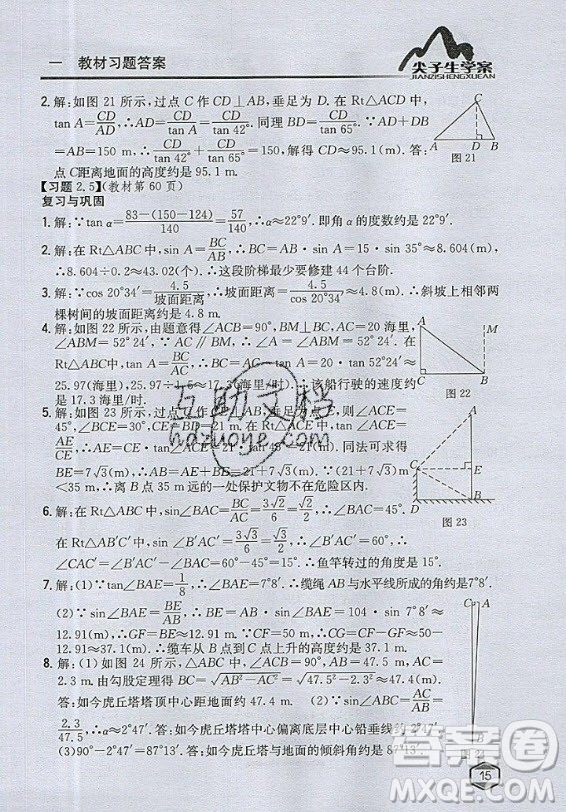 一 教材习题答案
尖子生学案
JIANZISHENGXUEAN
2. 解:如图 21 所示,过点 C 作 CD⊥AB,垂足为 D. 在 Rt△ACD 中,
tan A=CD/AD,∴AD=CD/tan A=CD/tan 42°. 同理 BD=CD/tan 65°. ∵AD+BD
=AB=150 m,∴CD/tan 42°+CD/tan 65°=150(m),解得 CD≈95.1(m). 答:
点 C 距离地面的高度约是 95.1 m.
图 21
【习题 2.5】(教材第 60 页)
复习与巩固
1. 解:∵tan α=83-(150-124)/140=57/140,∴α≈22°9′. 即角 α 的度数约是 22°9′.
2. 解:在 Rt△ABC 中,sin A=BC/AB,∴BC=AB·sin A≈8.604(m),∵
8.604÷0.2≈43.02(个),∴这段阶梯最少要修建 44 个台阶.
3. 解:∵cos 20°34′=4.5/坡面距离,∴坡面距离=4.5/cos 20°34′≈4.8(m). ∴斜坡上相邻两
棵树间的坡面距离约是 4.8 m.
4. 解:如图 22 所示,由题意得∠ACB=90°,BM⊥BC,AC=20 海里,
∠ABM=52°24′. ∵AC∥BM,∴∠BAC=∠ABM=52°24′. 在
Rt△ABC 中,tan A=BC/AC,∴BC=AC·tan A=20·tan 52°24′≈
25.97(海里),25.97÷1.5≈17.3(海里/时). ∴该船行驶的速度约
是 17.3 海里/时.
图 22
5. 解:如图 23 所示,过点
,则∠ACE=
45°,∠BCE=30°,CE=21 m.
∠ACE=
AE/CE,∴AE=CE·tan∠ACE=
=21(m). 同法可求得
BE=7√3(m). ∴AB=AE+BE=(21+7√3)(m). ∵(21+7√3)m
<35 m,∴离 B 点 35 m 远的一处保护文物不在危险区内.
图 23
6. 解:在 Rt△ABC 中,sin∠BAC=BC/AC=3√2/6=√2/2,∴∠BAC=45°.
在 Rt△AB′C′中,sin∠B′AC′=B′C′/AC′=3√3/6=√3/2,∴∠B′AC′=60°. ∴
∠CAC′=∠B′AC′-∠BAC=60°-45°=15°. ∴鱼竿转过的角度是 15°.
7. 解:(1)∵tan∠BAE=1/8,∴∠BAE≈7°8′. ∴缆绳与水平线所成的角约是7°8′.
(2)∵sin∠BAE=BE/AB,∴BE=AB·sin∠BAE=104·sin 7°8′≈
12.91(m),∴GF=BE≈12.91(m). ∵CF=CG+GF≈24.2+
12.91≈37.1(m). ∴缆车从 B 点到 C 点上升的高度约是 37.1 m.
8. 解:(1) 如图 24 所示,在 Rt△ABC 中,∵AB=47.5 m,AC=
2.3 m. 由勾股定理得 BC=√(AB²-AC²)=√(47.5²-2.3²)≈47.4(m).
答:如今虎丘塔塔顶中心距地面约 47.4 m. (2)∵sin α=AC/AB=
2.3/47.5,∴α≈2°47′. 答:如今虎丘塔塔中心偏离底层中心铅垂线的度数约是2°47′.
(3)90°-2°47′=87°13′. 答:如今虎丘塔与地面的倾斜角约是 87°13′.
图 24
互助文档
hdzuoye.com
答案圈
MXQE.COM
15